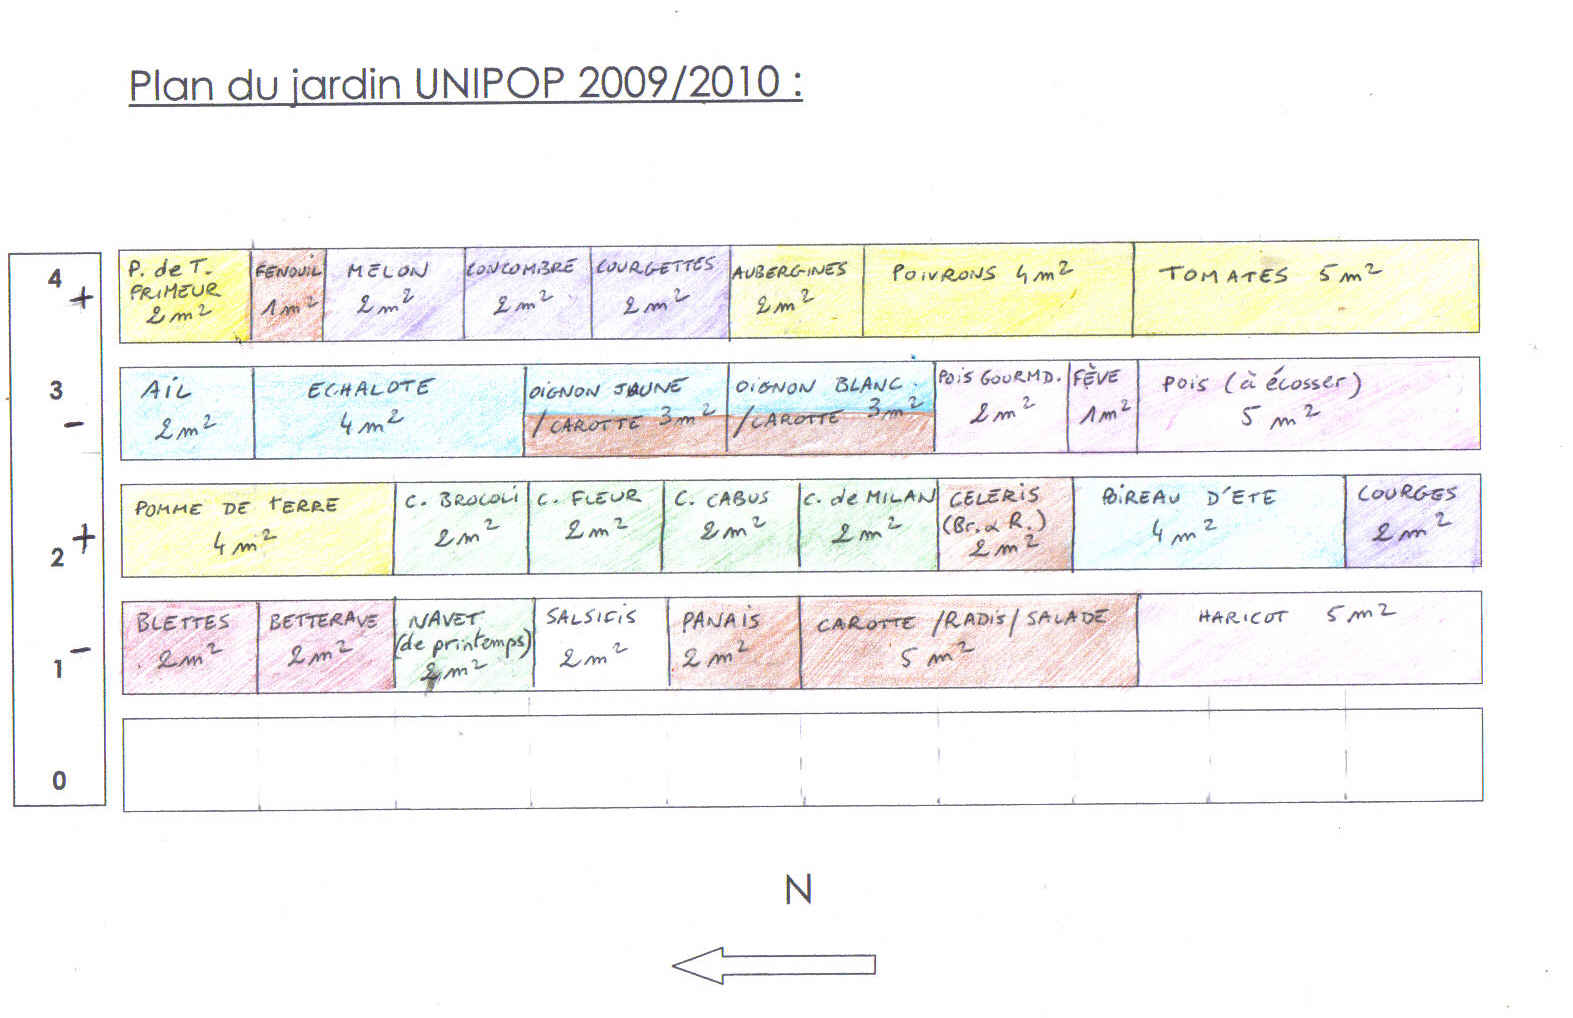 Plan du jardin UNIPOP 2009/2010 :
4 +
P. de T.
PRIMEUR
2 m²
FENOUIL
1 m²
MELON
2 m²
CONCOMBRE
2 m²
COURGETTES
2 m²
AUBERGINES
2 m²
POIVRONS 4 m²
TOMATES 5 m²
3 -
AIL
2 m²
ECHALOTE
4 m²
OIGNON JAUNE
/CAROTTE 3 m²
OIGNON BLANC
/CAROTTE 3 m²
POIS GOURMD.
2 m²
FÈVE
1 m²
POIS (à écosser)
5 m²
2 +
POMME DE TERRE
4 m²
C. BROCOLI
2 m²
C. FLEUR
2 m²
C. CABUS
2 m²
C. de MILAN
2 m²
CELERIS
(Br. & R.)
2 m²
POIREAU D'ETE
4 m²
COURGES
2 m²
1 -
BLETTES
2 m²
BETTERAVE
2 m²
NAVET
(de printemps)
2 m²
SALSIFIS
2 m²
PANAIS
2 m²
CAROTTE /RADIS/ SALADE
5 m²
HARICOT 5 m²
0
N